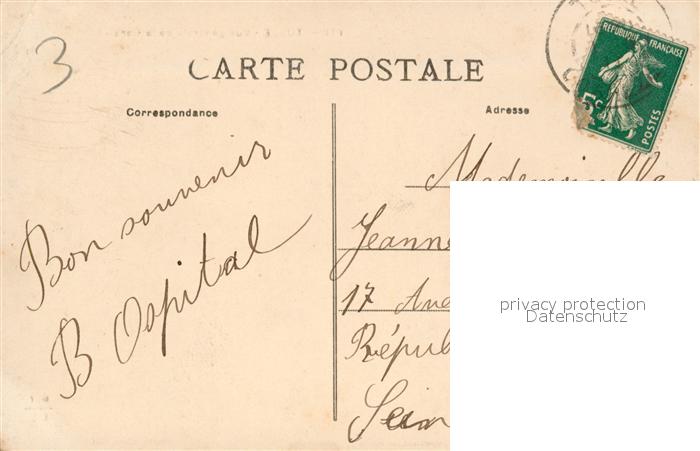 3
CARTE POSTALE
Correspondance
Adresse
RÉPUBLIQUE FRANÇAISE
5c
POSTES
Bon souvenir
B Ospital
Mademoiselle
Jeanne
17 Ave
Répub
Sein
privacy protection
Datenschutz